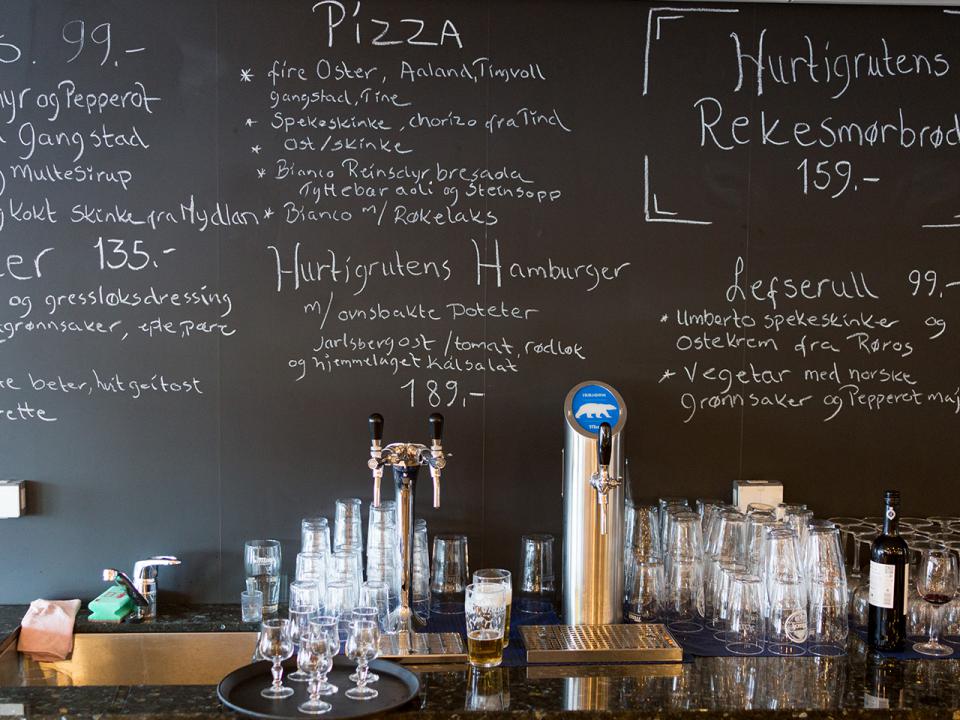 S. 99,-
og Pepperot
Gangstad
Multesirup
Kokt skinke fra Mydlan
135.-
og gressløksdressing
grønnsaker, eple, pære
beter, hvit geitost
Pizza
* fire Oster, Aaland, Tingvoll
gangstad, Tine
* Spekeskinke, chorizo fra Tind
* Ost/skinke
* Bianco Reinsdyr bresaola
Tyttebær aoli og Steinsopp
* Bianco m/ Røkelaks
Hurtigrutens Hamburger
m/ ovnsbakte Poteter
Jarlsberg ost/tomat, rødløk
og hjemmelaget kålsalat
189,-
Hurtigrutens
Rekesmørbrød
159.-
Lefserull 99,-
* Umberto spekeskinke og
Ostekrem fra Røros
* Vegetar med norske
grønnsaker og Pepperot maj